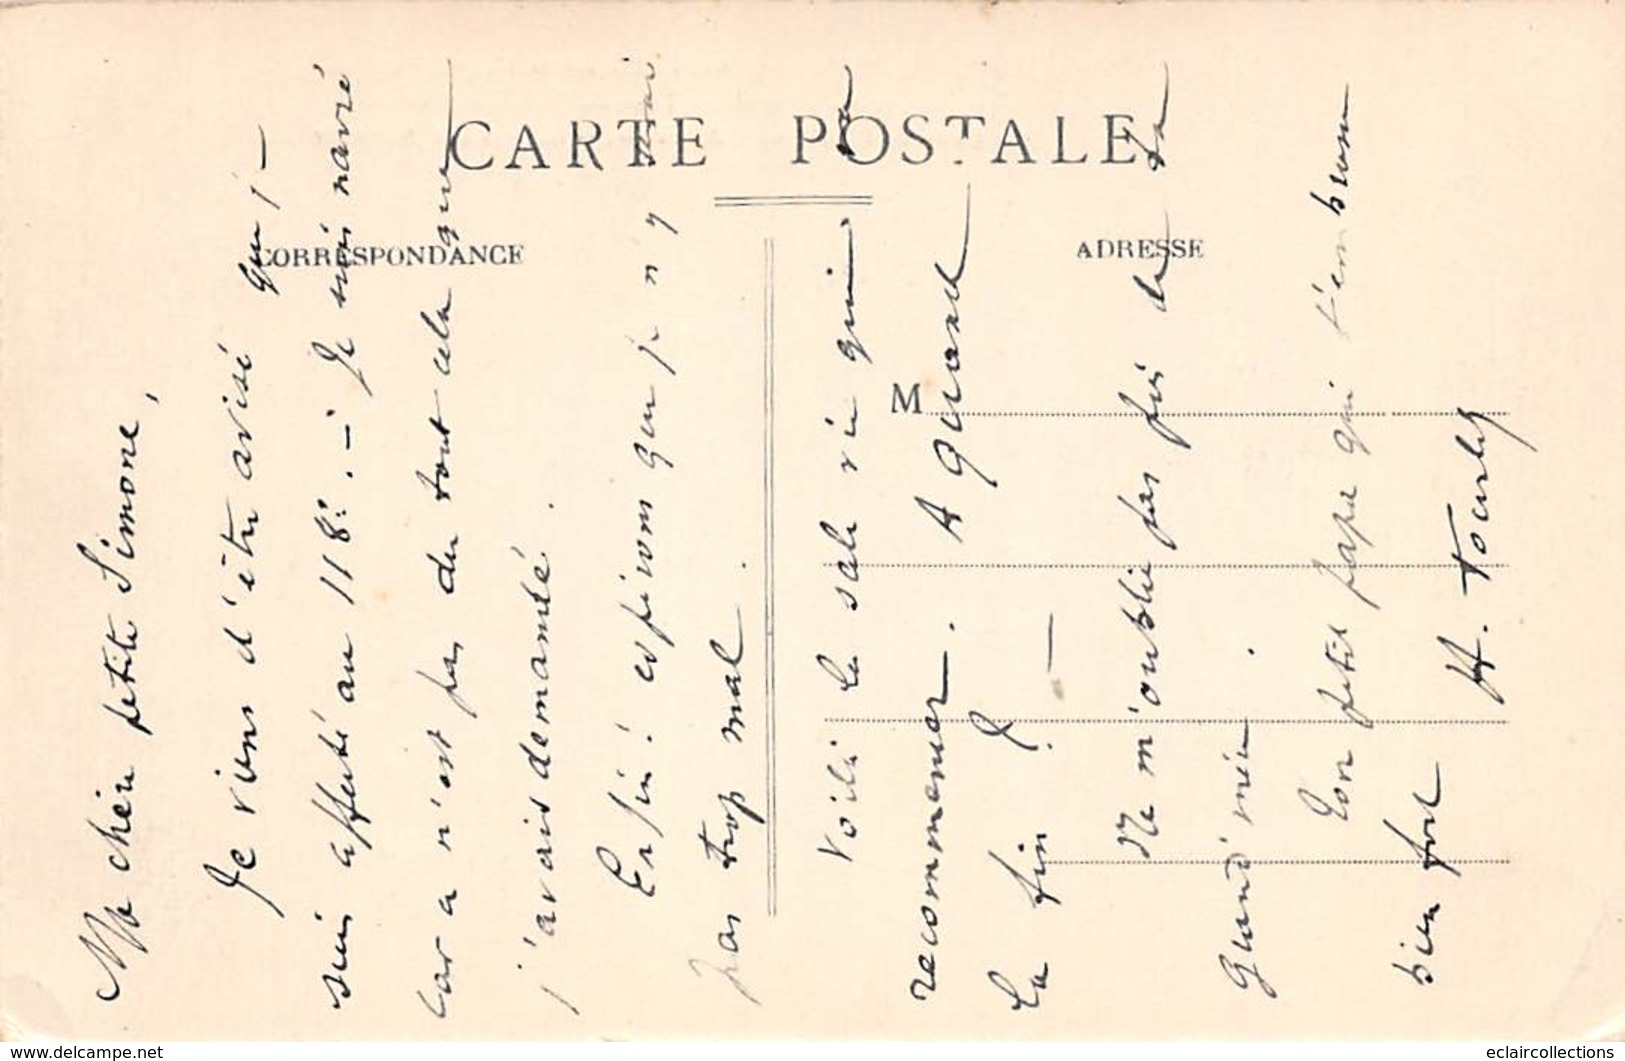 CARTE POSTALE
CORRESPONDANCE
ADRESSE
M
Ma chère petite Simone,
Je viens d'être avisé que j—
suis affecté au 118e. — Je suis navré
car ce n'est pas du tout cela que
j'avais demandé.
Enfin! espérons que je n'y serai
pas trop mal.
Voilà la sale vie qui va
recommencer. A quand
la fin ? —
Ne m'oublie pas près de ta
Grand'mère.
Ton petit papa qui t'embrasse
bien fort
H.
www.delcampe.net
eclaircollections